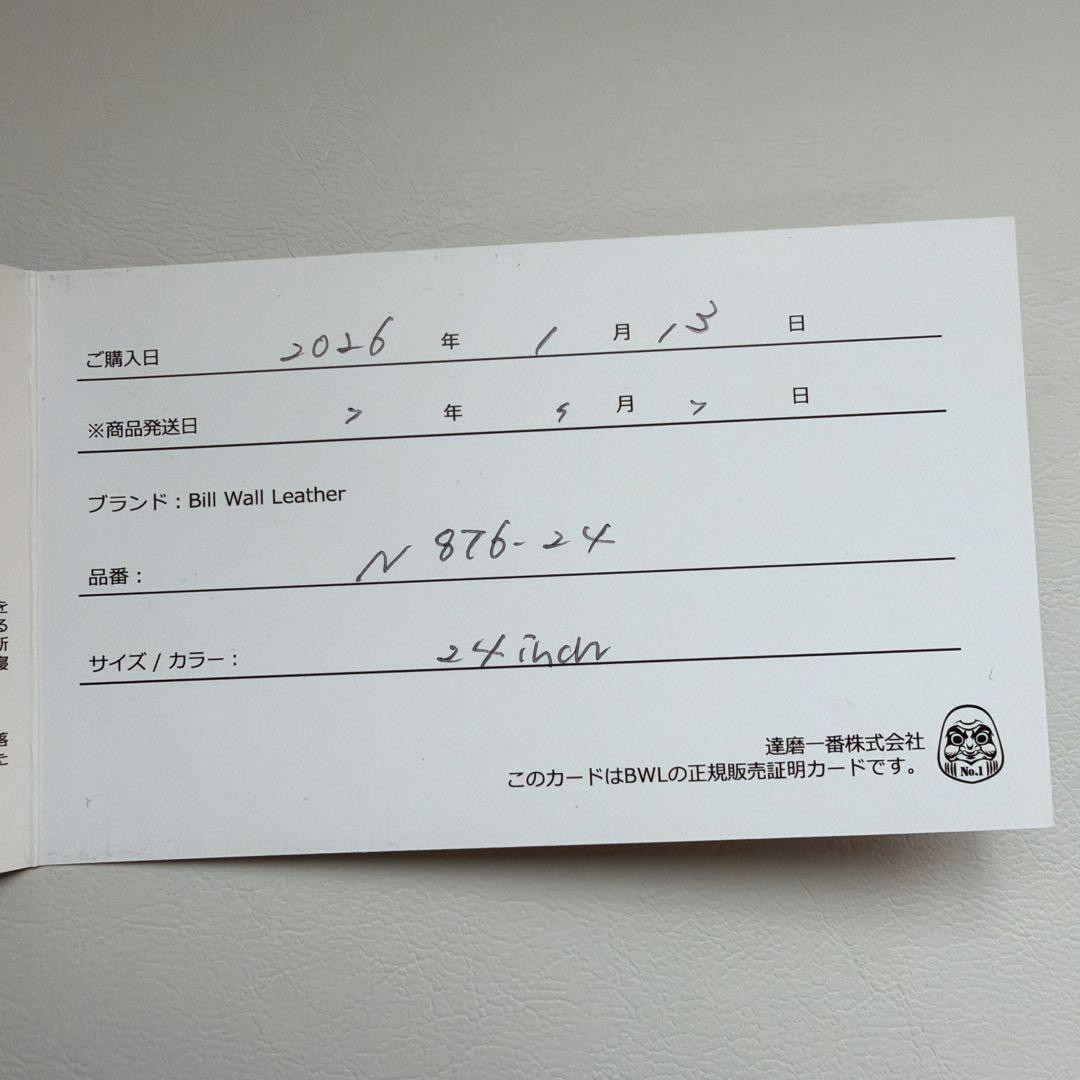 ご購入日 2026 年 1 月 13 日
※商品発送日 〃 年 〃 月 〃 日
ブランド：Bill Wall Leather
品番： N 876-24
サイズ / カラー： 24 inch
達磨一番株式会社
このカードはBWLの正規販売証明カードです。
No.1
を
る
落
た